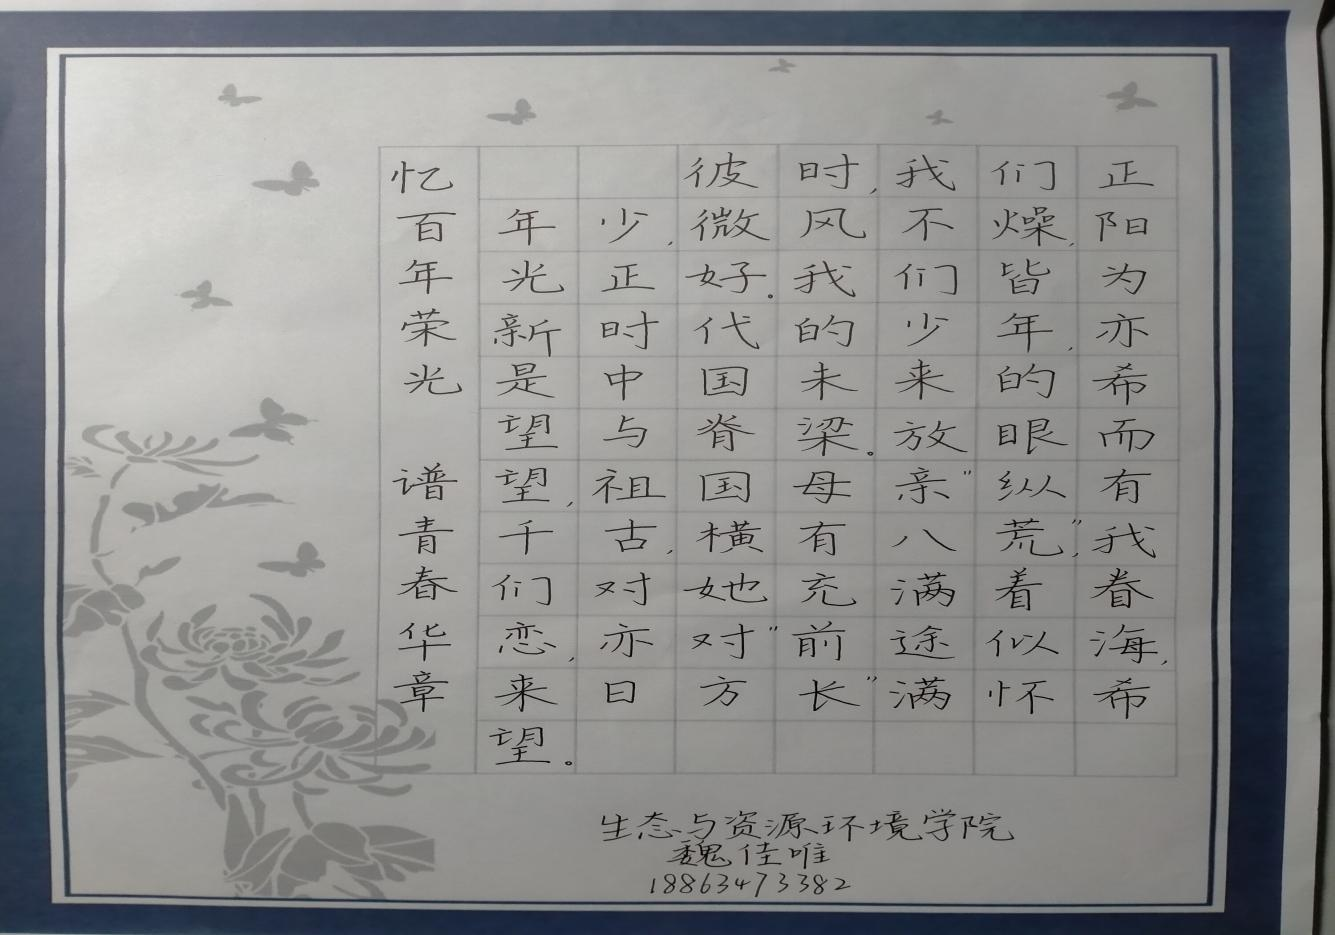 忆百年荣光 谱青春华章
彼时,我们正
年少,微风不燥,阳
光正好。我们皆为
新时代的少年,亦
是中国未来的希
望与脊梁。放眼而
望,祖国母亲"纵有
千古,横有八荒",我
们对她充满着眷
恋,亦对"前途似海,
来日方长"满怀希
望。
生态与资源环境学院
魏佳唯
18863473382